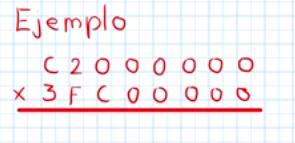 Ejemplo
C2000000
x 3FC00000